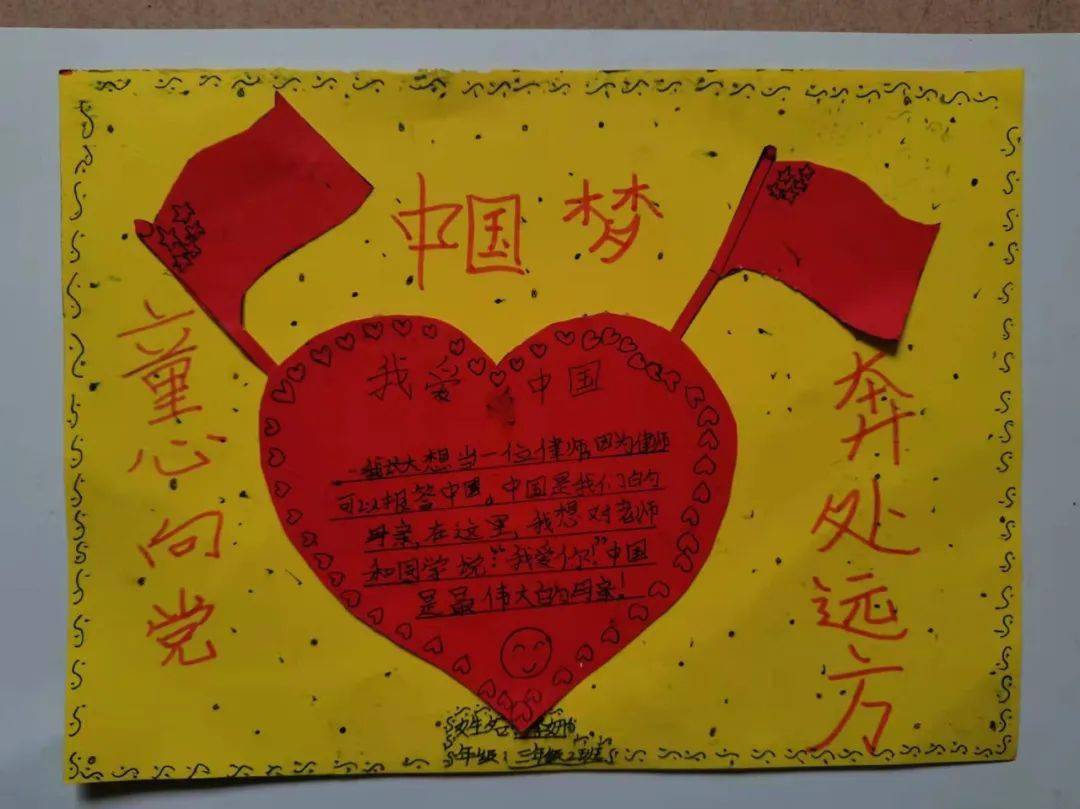 中国梦
童心向党
奔处远方
我爱中国
我长大想当一位律师,因为律师
可以报答中国。中国是我们的
母亲,在这里,我想对老师
和同学说:“我爱你!”中国
是最伟大的母亲!
姓名:
年级:三年级2班